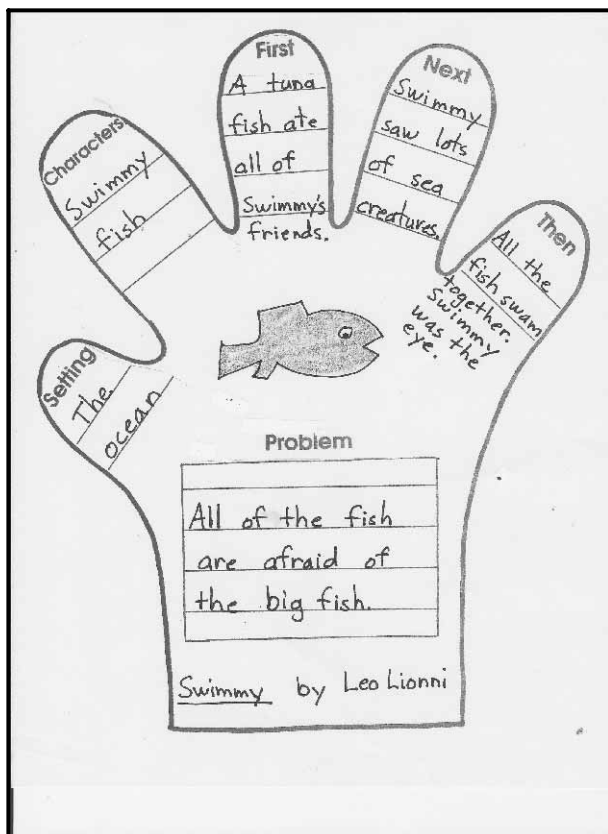 Setting
The
ocean
Characters
Swimmy
fish
First
A tuna
fish ate
all of
Swimmy's
friends.
Next
Swimmy
saw lots
of sea
creatures.
Then
All the
fish swam
together.
Swimmy
was the
eye.
Problem
All of the fish
are afraid of
the big fish.
Swimmy by Leo Lionni